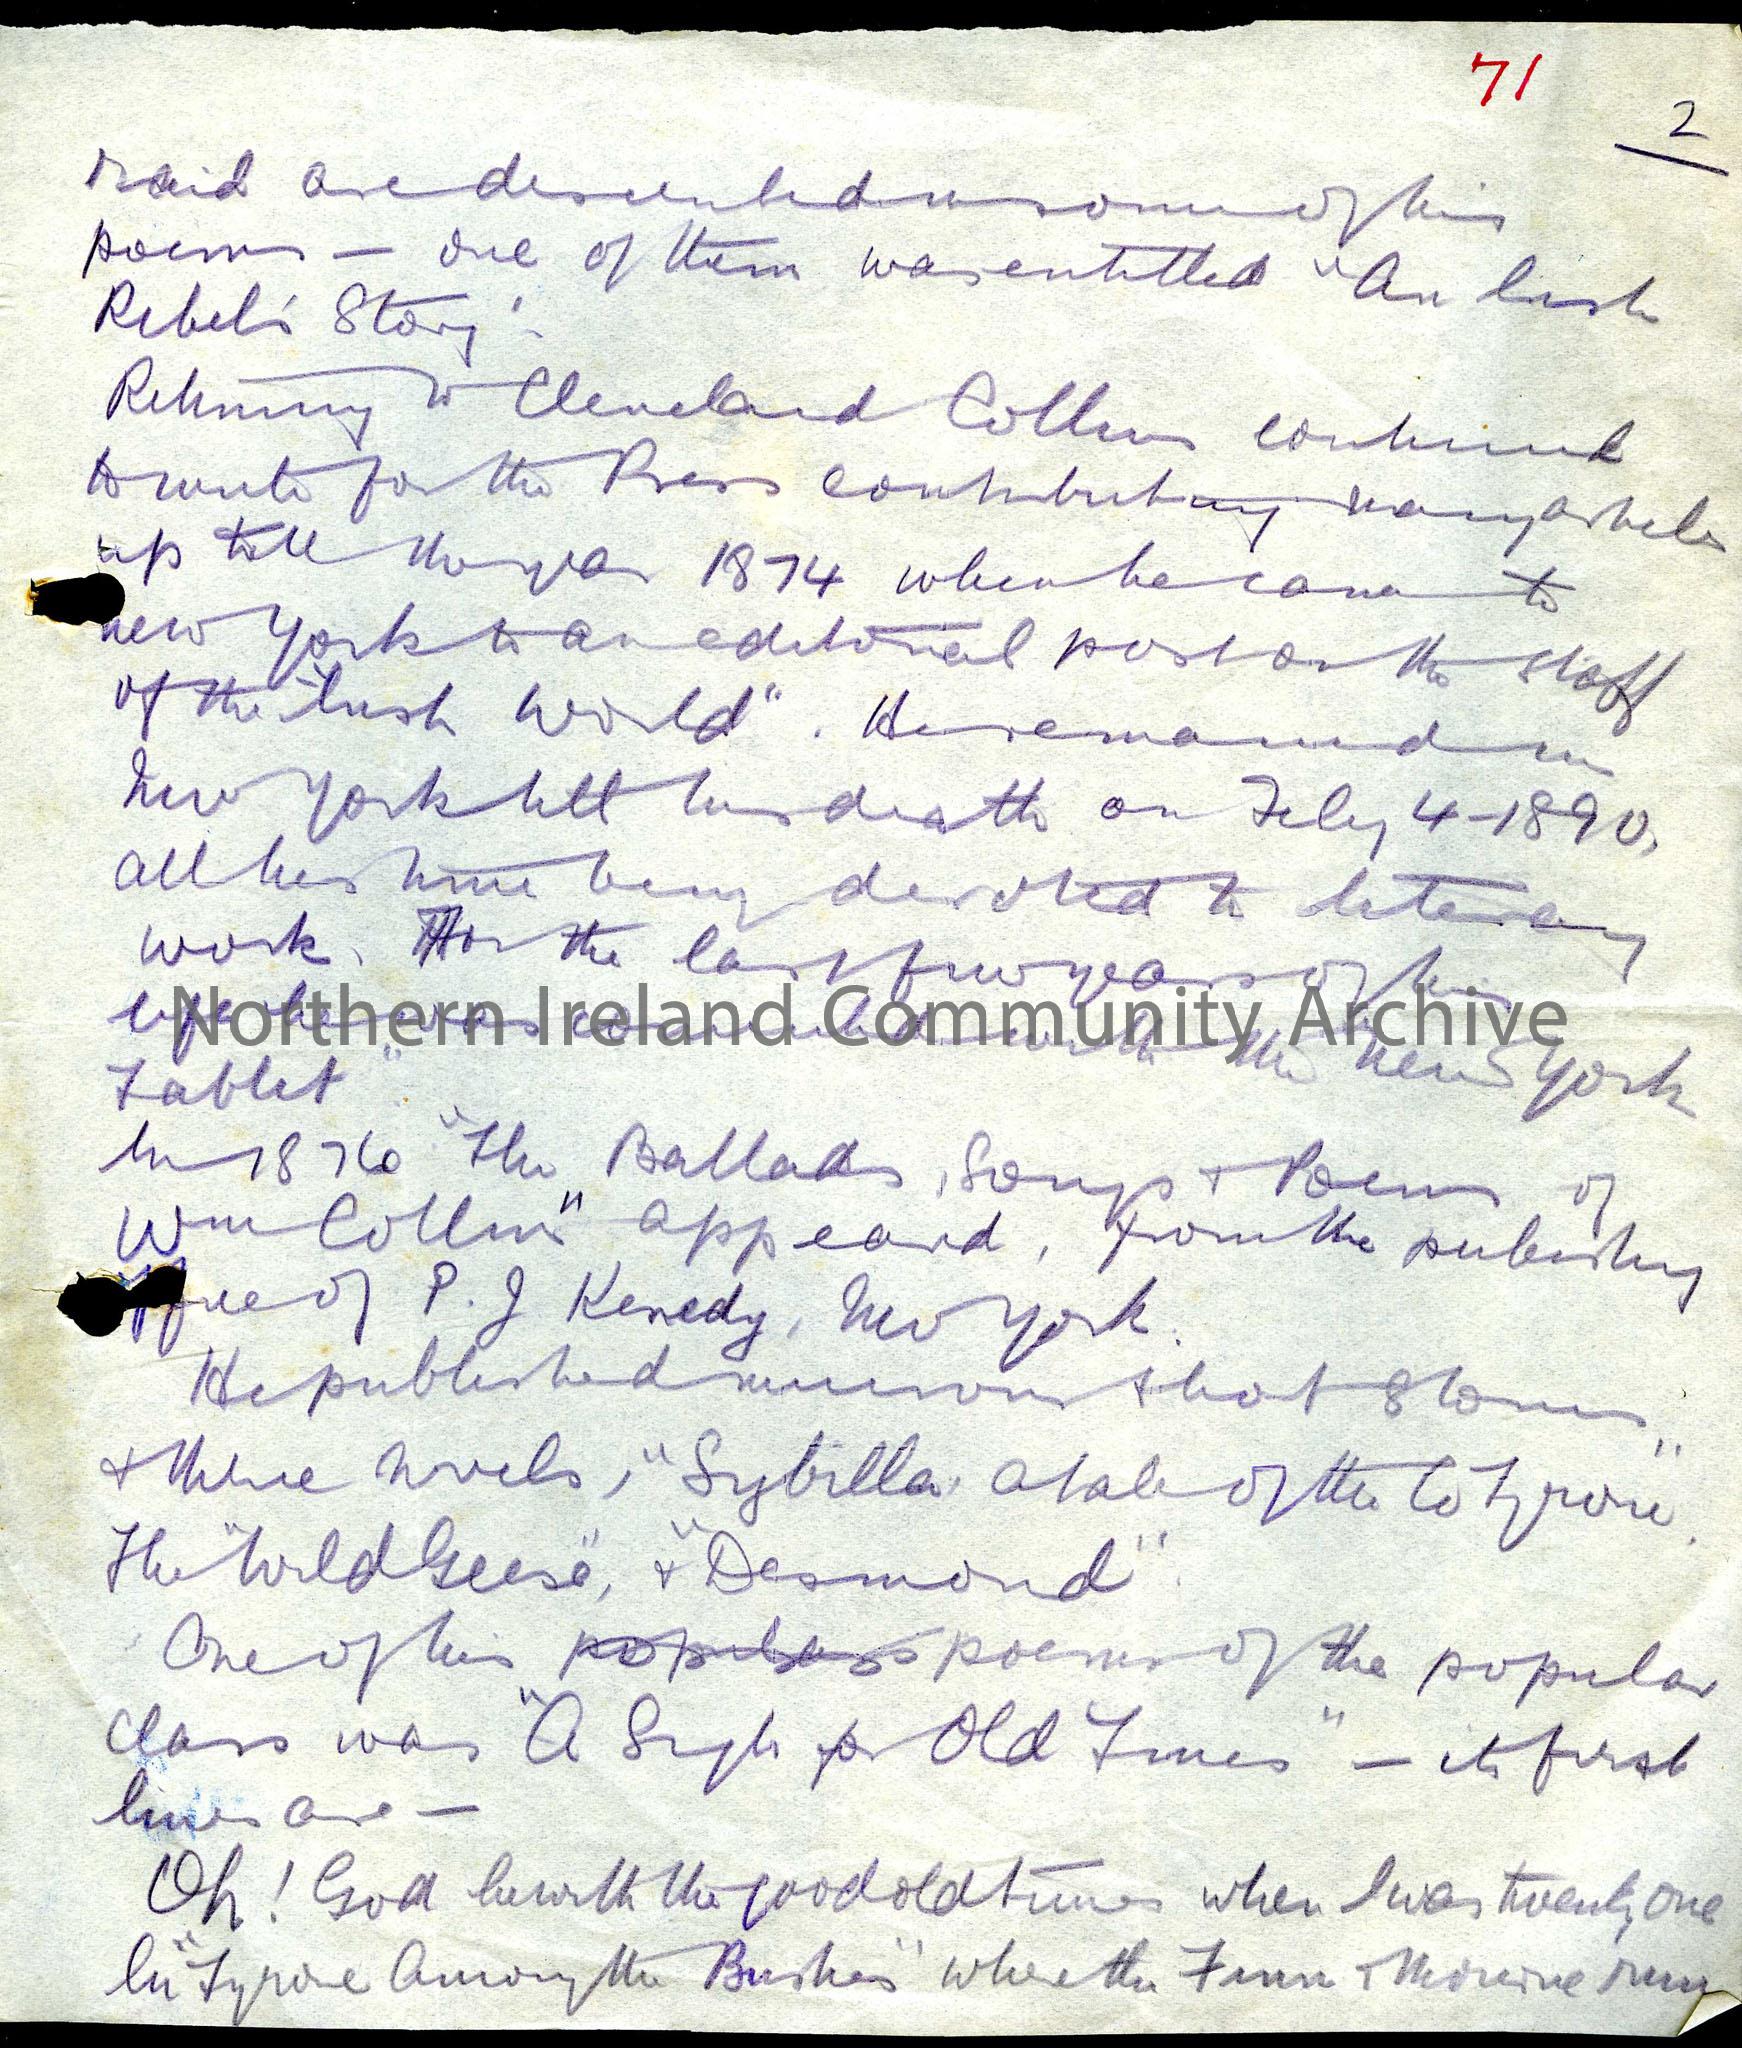 71
2
raid are described in some of his
poems — one of them was entitled "An Irish
Rebel's Story".
Returning to Cleveland Collins continued
to write for the Press contributing many articles
up till the year 1874 when he came to
New York to an editorial post on the staff
of the "Irish World". He remained in
New York till his death on Feby 4 - 1890,
all his time being devoted to literary
work. For the last few years of his
life he was connected with the "New York
Tablet"
In 1876 "The Ballads, Songs & Poems of
Wm Collins" appeared, from the publishing
office of P. J Kenedy, New York.
He published numerous short stories
& three novels, "Sybilla, a tale of the Co Tyrone".
The "Wild Geese", & "Desmond".
One of his popular poems of the popular
class was "A Sigh for Old Times" — its first
lines are —
Oh! God be with the good old times when I was twenty one
In "Tyrone Among the Bushes" where the Finn & Mourne run
Northern Ireland Community Archive